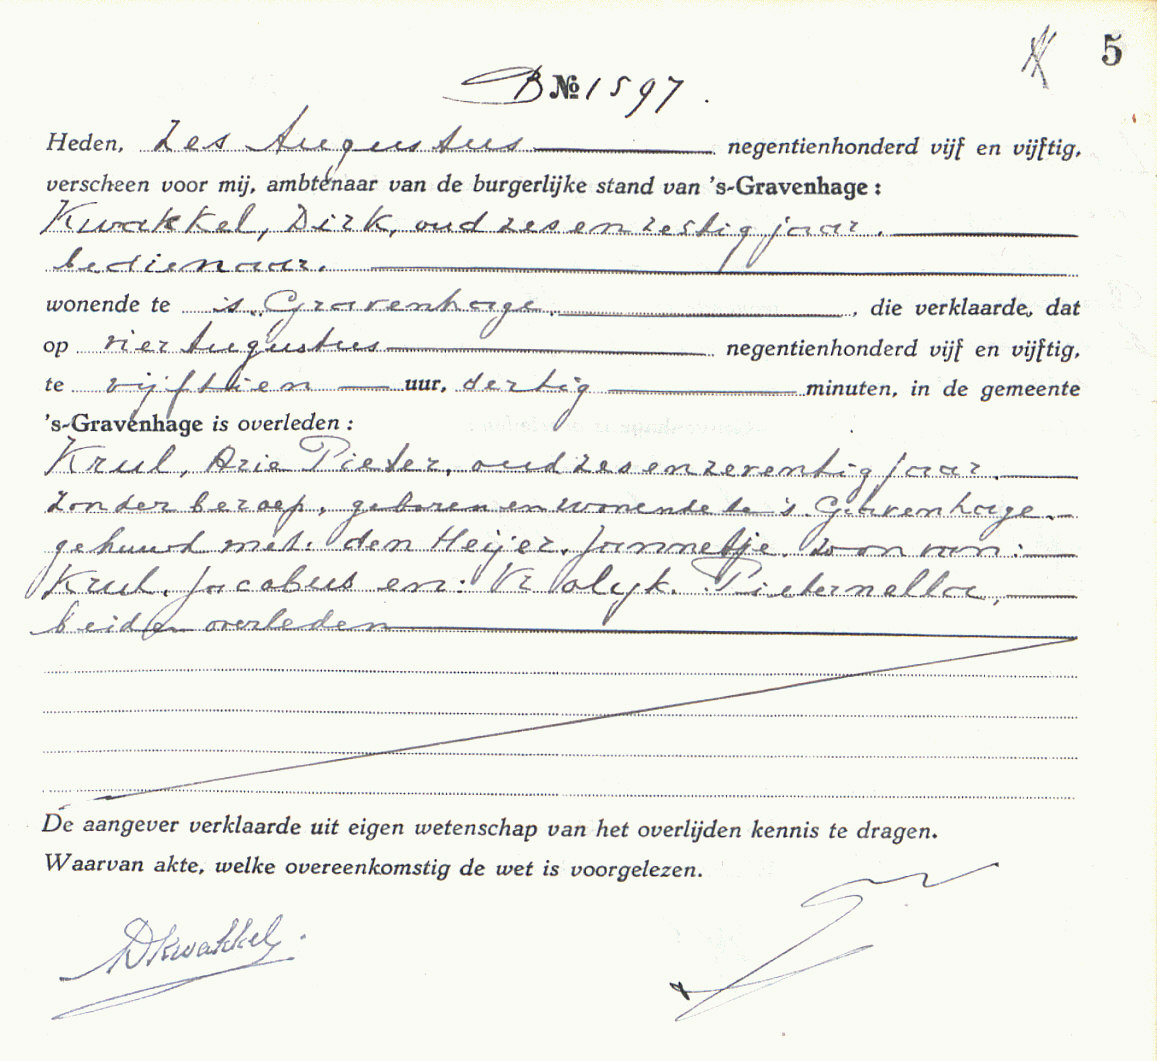 5
B No 1597.
Heden, Zes Augustus negentienhonderd vijf en vijftig,
verscheen voor mij, ambtenaar van de burgerlijke stand van 's-Gravenhage:
Kwakkel, Dirk, oud zesenzestig jaar,
bedienaar,
wonende te 's Gravenhage, die verklaarde, dat
op vier Augustus negentienhonderd vijf en vijftig,
te vijftien uur, dertig minuten, in de gemeente
's-Gravenhage is overleden:
Krul, Arie Pieter, oud zesenzeventig jaar,
zonder beroep, geboren en wonende te 's Gravenhage,
gehuwd met: den Heijer, Jannetje, zoon van:
Krul, Jacobus en: Vrolijk, Pieternella,
beiden overleden
De aangever verklaarde uit eigen wetenschap van het overlijden kennis te dragen.
Waarvan akte, welke overeenkomstig de wet is voorgelezen.
DKwakkel